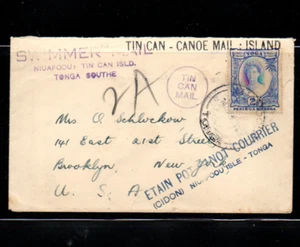 TIN CAN - CANOE MAIL - ISLAND
SWIMMER MAIL
NIUAFOOU, TIN CAN ISLD.
TONGA SOUTHE
TIN
CAN
MAIL
TOGA
2
Mrs. O. Schlockow
141 East 21st Street
Brooklyn, New York
U. S. A.
ETAIN POT CANOT COURRIER
(CIDON) NIUAFOOU ISLE - TONGA